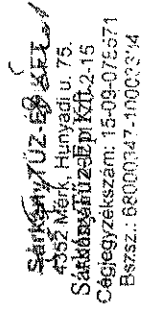 Sárkány Tűz-Ép KFT
4352 Mérk, Hunyadi u. 75.
Sárkány Tűz-Ép Kft.2-15
Cégjegyzékszám: 15-09-078571
Bszsz.: 68000347-